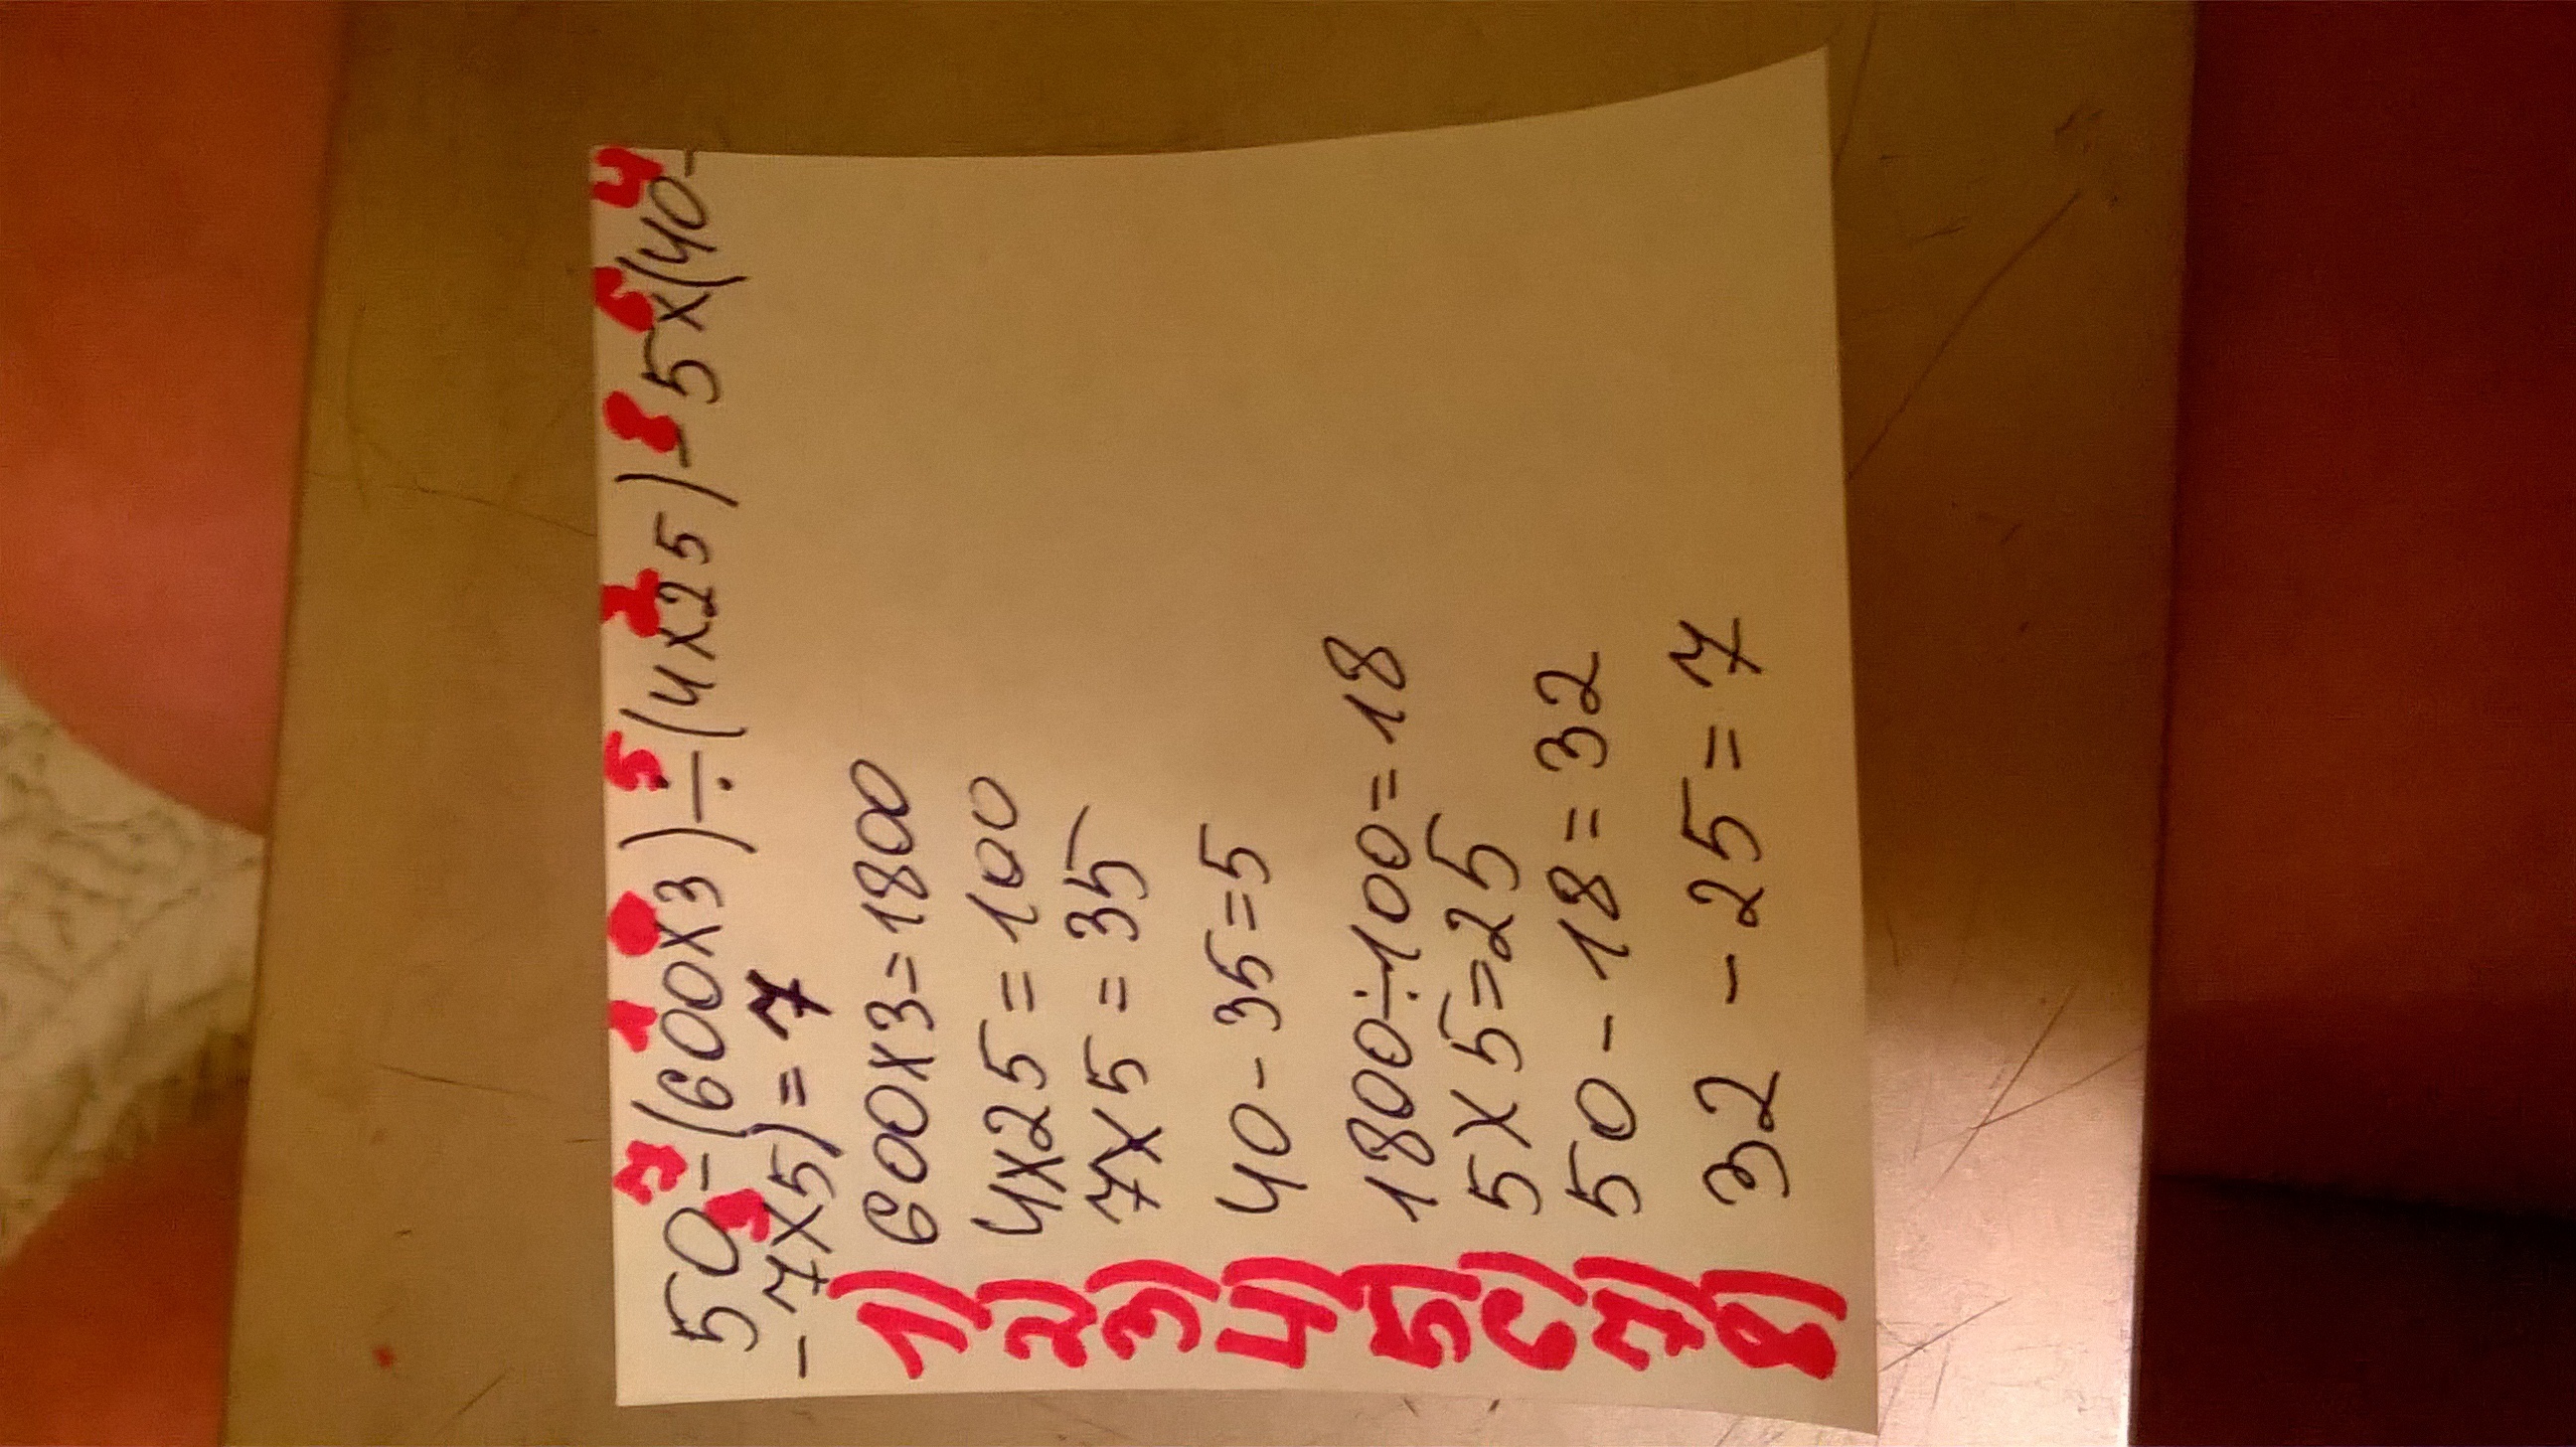 7 1 5 2 8 6 4
50-(600x3)÷(4x25)-5x(40-
3
-7x5)=7
1) 600x3=1800
2) 4x25=100
3) 7x5=35
4) 40-35=5
5) 1800÷100=18
6) 5x5=25
7) 50-18=32
8) 32-25=7